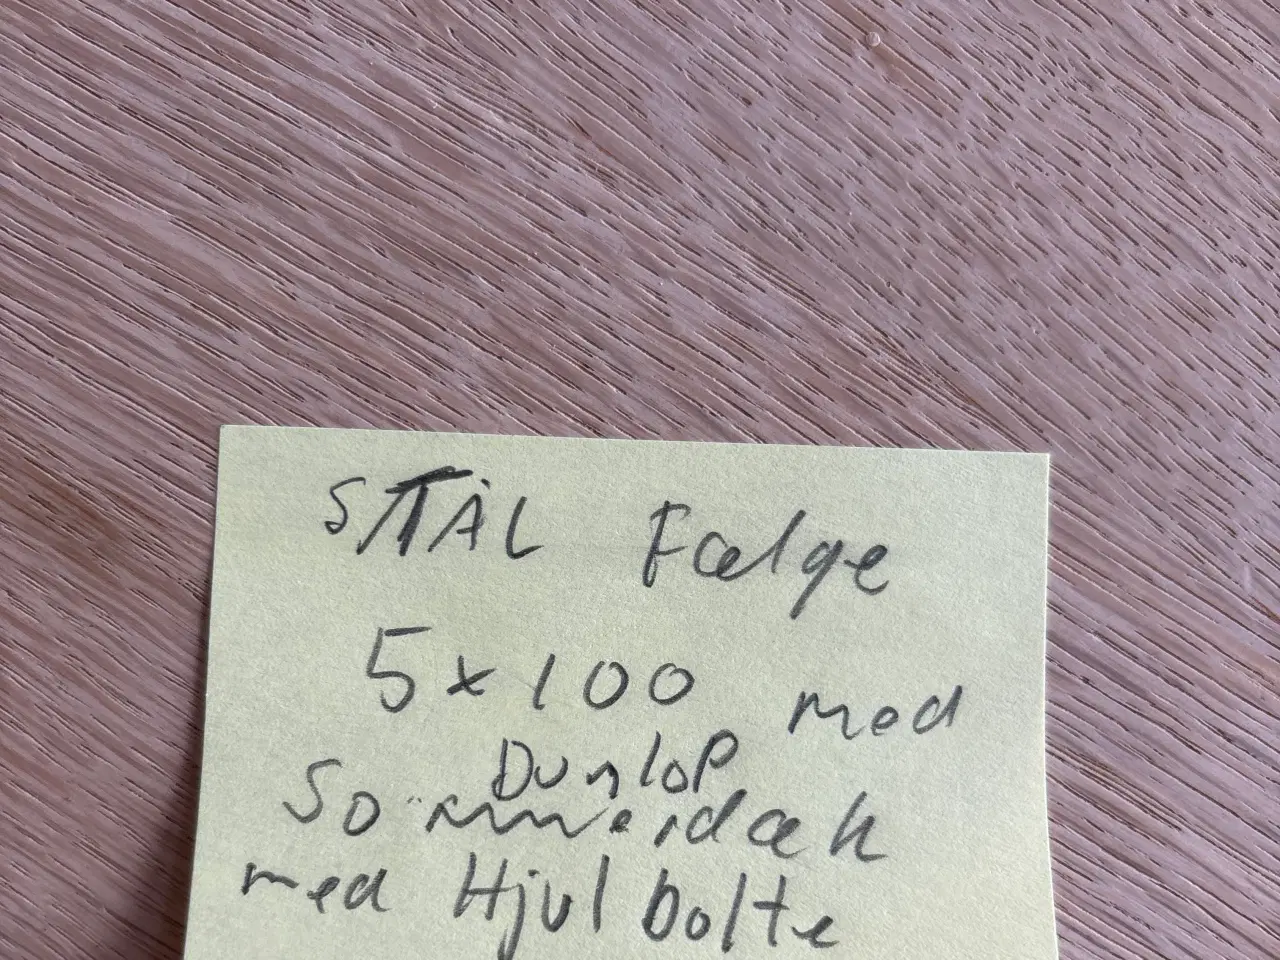 STÅL Fælge
5x100 med
Dunlop
Sommerdæk
med Hjul bolte